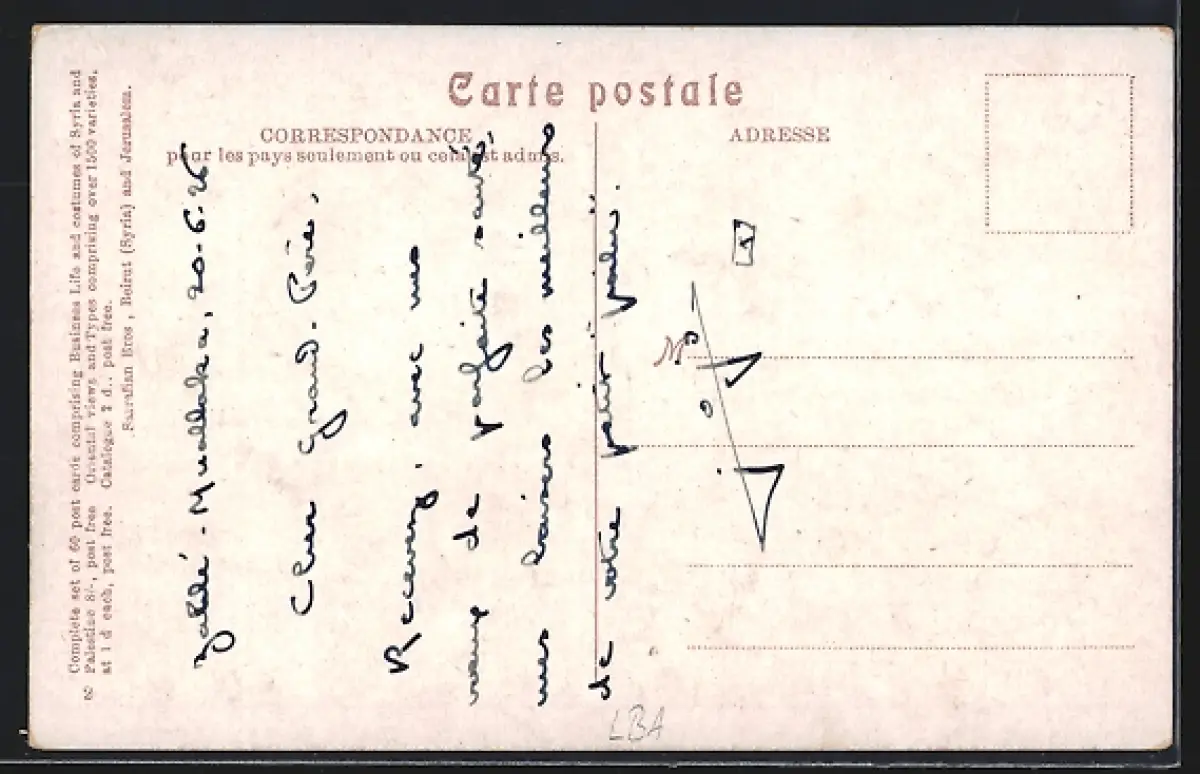 Carte postale
CORRESPONDANCE
pour les pays seulement ou cela est admis.
ADRESSE
Complete set of 60 post cards comprising Business Life and costumes of Syria and
Palestine 8/-, post free Oriental views and Types comprising over 1500 varieties,
at 1 d each, post free. Catalogue 7 d., post free.
Sarrafian Bros, Beirut (Syria) and Jerusalem.
Zahlé - Muallaka, 20-6-26
Cher Grand-Père,
Recevez, avec mes
vœux de parfaite santé,
mes baisers les meilleurs
de votre petit
LBA